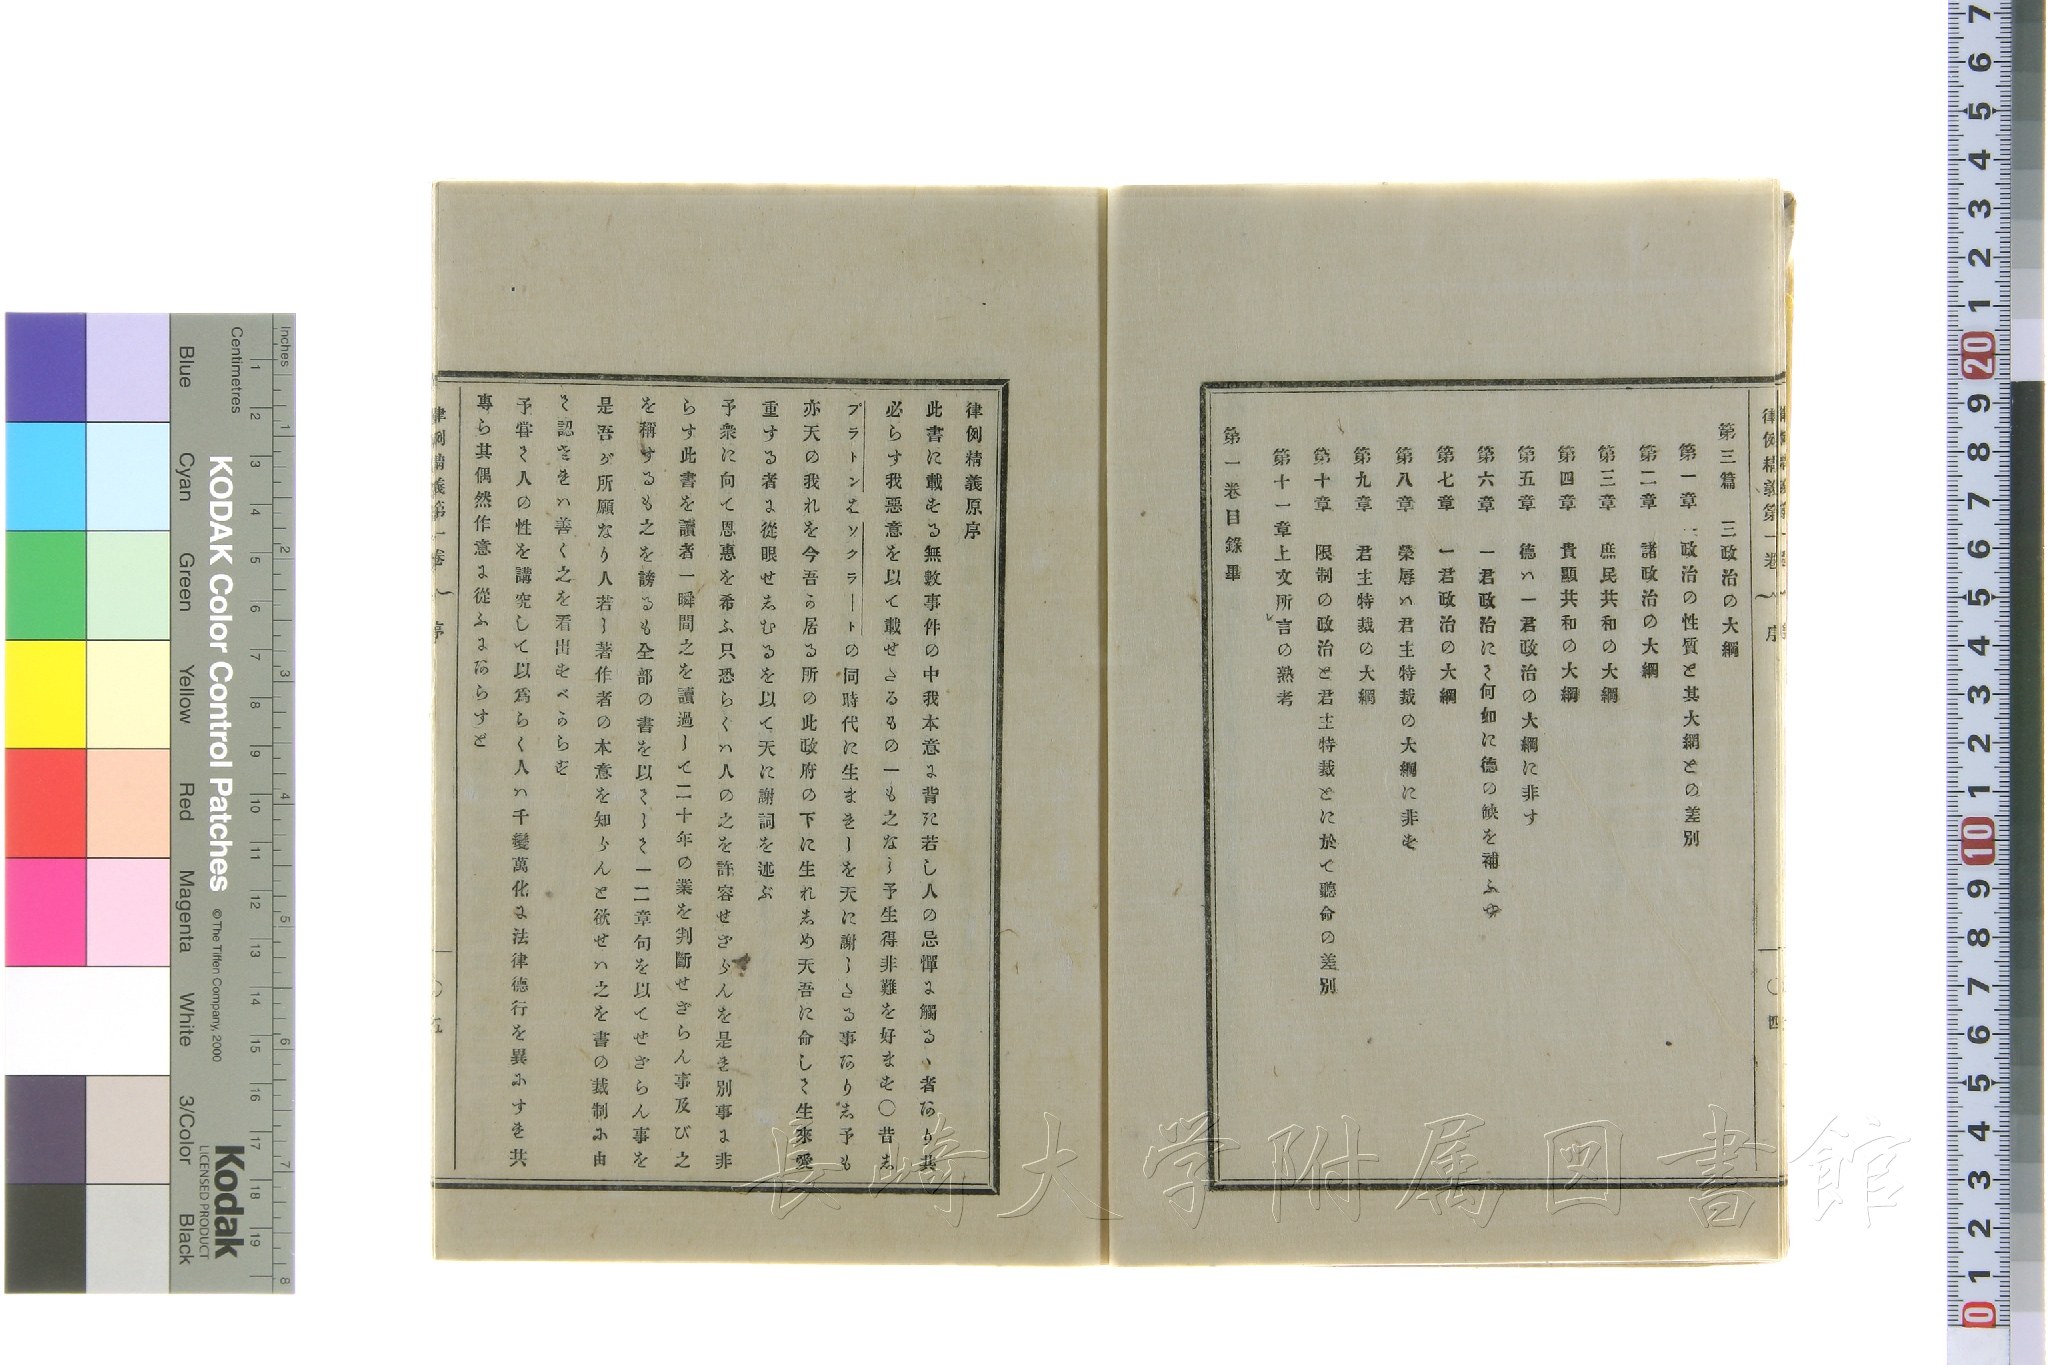 律例精義第一巻 序 〇四
第三篇 三政治の大綱
第一章 三政治の性質と其大綱との差別
第二章 諸政治の大綱
第三章 庶民共和の大綱
第四章 貴顯共和の大綱
第五章 德ハ一君政治の大綱に非す
第六章 一君政治にて何如に德の缺を補ふや
第七章 一君政治の大綱
第八章 榮辱ハ君主特裁の大綱に非も
第九章 君主特裁の大綱
第十章 限制の政治と君主特裁とに於て聽命の差別
第十一章上文所言の熟考
第一卷目錄畢
律例精義原序
此書に載もる無數事件の中我本意に背に若し人の忌憚に觸るゝ者あり共
必らす我惡意を以て載せさるもの一も之なし予生得非難を好まも〇昔し
プラトンはソクラートの同時代に生まきしを天に謝しさる事ありし予も
亦天の我れを今吾か居る所の此政府の下に生れしめ天吾に命して生來愛
重する者に從眼せしむるを以て天に謝詞を述ぶ
予衆に向て恩惠を希ふ只恐らくハ人の之を許容せさらんを是は別事に非
らす此書を讀者一瞬間之を讀過して二十年の業を判斷せさらん事及び之
を稱するも之を謗るも全部の書を以てして一二章句を以てせさらん事を
是吾が所願なり人若し著作者の本意を知らんと欲せハ之を書の裁制に由
て認さきハ善く之を看出もべからも
予甞て人の性を講究して以爲らく人ハ千變萬化に法律德行を異にすき共
專ら其偶然作意に從ふにあらすと
律例精義第一卷 序 〇五
長崎大学附属図書館
KODAK Color Control Patches
© The Tiffen Company, 2000
Kodak
LICENSED PRODUCT
Inches
Centimetres
Blue
Cyan
Green
Yellow
Red
Magenta
White
3/Color
Black